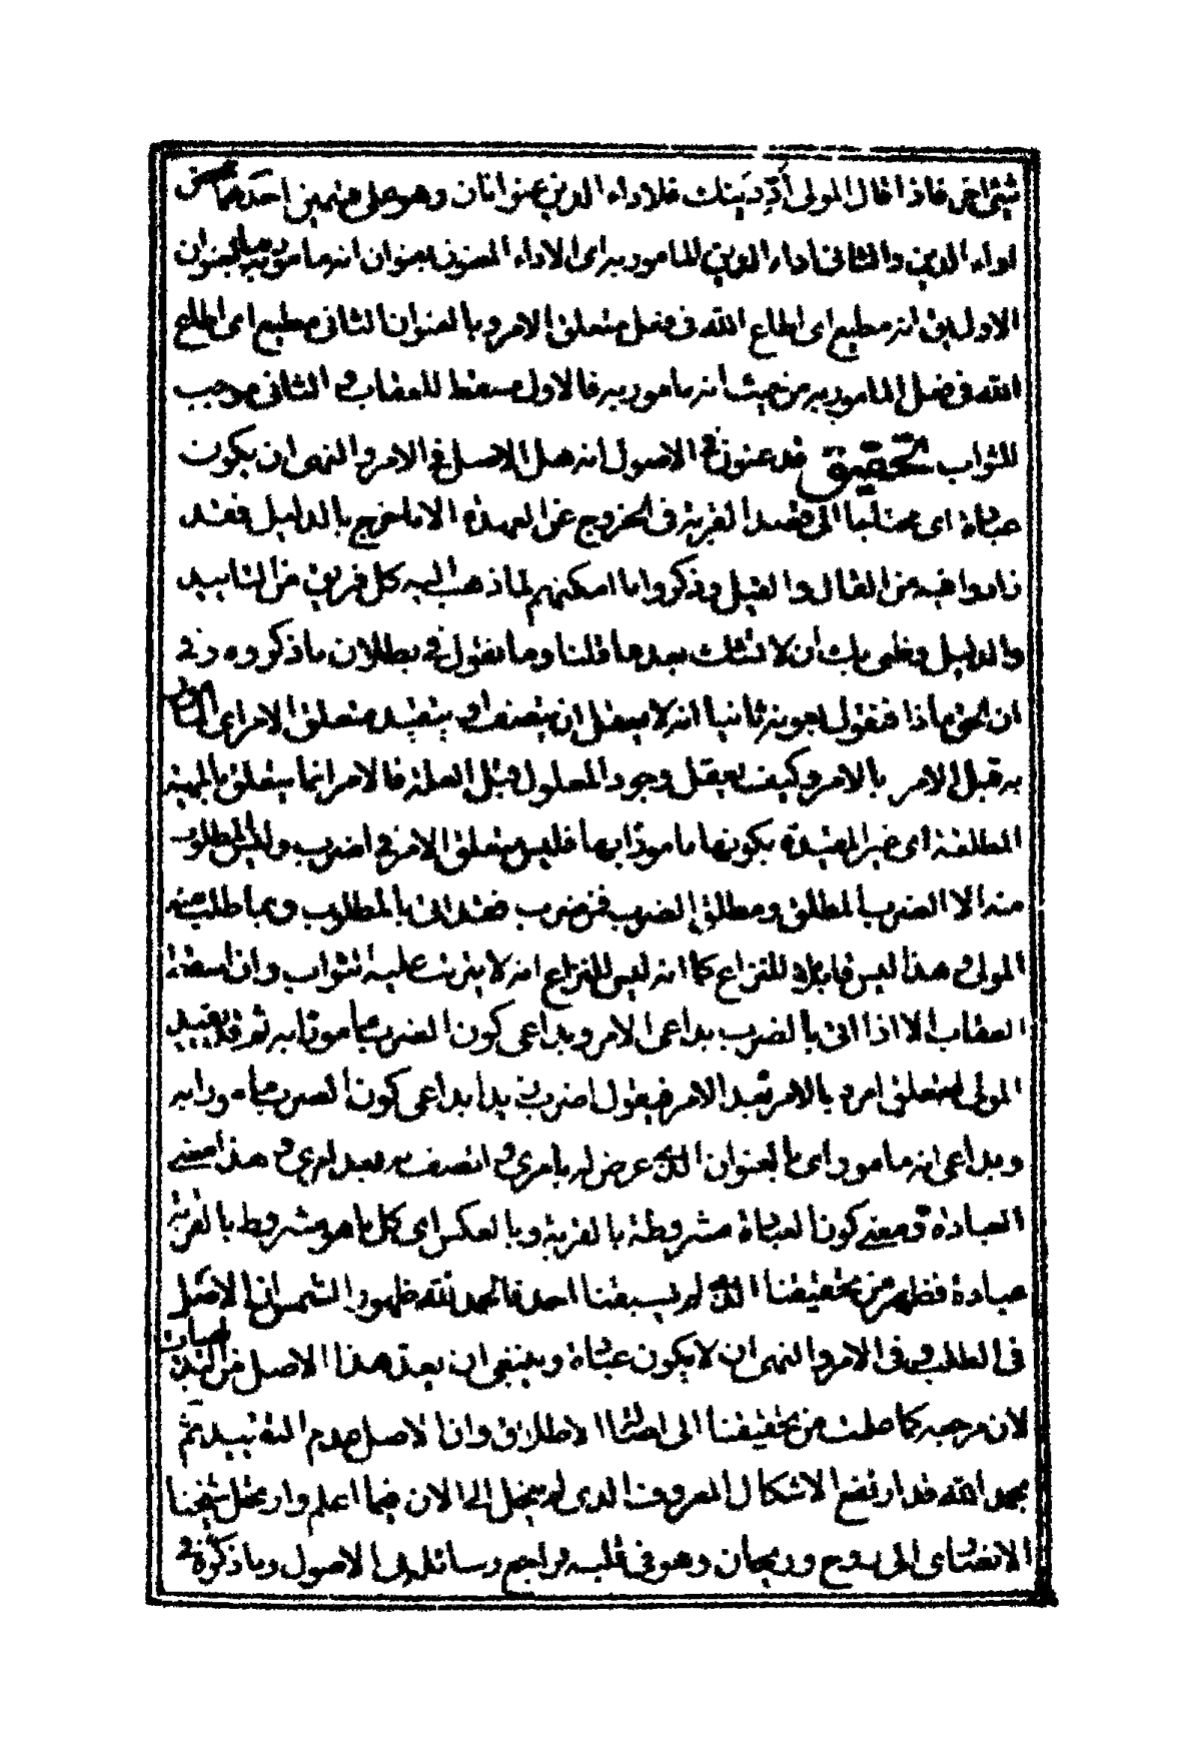 شيئا اخر فاذا قال المولى أدِّ دَينك فلاداء الدين عنوانان وهو على ضمين احدهما محض
اداء الدين والثانى اداء الدين المامور به اى الاداء المعنون بعنوان انه مامور به فبالعنوان
الاول يق انه مطيع اى اطاع الله فى فعل متعلق الامر وبالعنوان الثانى مطيع اى اطاع
الله فى فعل المامور به من حيث انه مامور به فالاول مسقط للعقاب و الثانى موجب
للثواب تحقيق قد عنون فى الاصول انه هل الاصل فى الامر و النهى ان يكون
عبادة اى محتاجا الى قصد القربة فى الخروج عن العهدة الا ما خرج بالدليل فقد
زادوا فيه من القال والقيل وذكروا ما امكنهم لما ذهب اليه كل فريق من التاييد
والدليل وظنى بك أن لا تشك بعد ما قلنا وما نقول فى بطلان ما ذكروه وفى
ان الحق ماذا فنقول لجونه ثانيا انه لا يعقل ان يتصف و يتقيد متعلق الامر اى الماتى
به قبل الامر بالامر وكيف يعقل وجود المعلول قبل العلة فالامر انما يتعلق بالمهية
المطلقة اى غير المقيدة بكونها مامورا بها فليس متعلق الامر فى اضرب و المطلوب
منه الا الضرب المطلق ومطلق الضرب فمن ضرب فقد اتى بالمطلوب وبما طلب منه
المولى و هذا ليس قابلا للنزاع كما انه ليس للنزاع انه لا يترتب عليه الثواب وان اسقط
العقاب الا اذا اتى بالضرب بداعى الامر وبداعى كون الضرب مامورا به ثم قد يقيد
المولى متعلق امره بالامر بعد الامر فيقول اضرب زيدا بداعى كون الضرب مامورا به
وبداعى انه مامور اى بالعنوان الذى عرض له بامرى و اتصف به بعد امرى و هذا معنى
العبادة و معنى كون العبادة مشروطة بالقربة وبالعكس اى كل ما هو مشروط بالقربة
عبادة فظهر من تحقيقنا الذى لم يسبقنا احد فالحمد لله ظهور الشمس ان الاصل
فى الطلب و فى الامر والنهى ان لا يكون عبادة وينبغى ان يعد هذا الاصل من البديهيات
لان مرجعه كما علمت من تحقيقنا الى اصالة الاطلاق وان الاصل عدم التقييد ثم
بحمد الله قد ارتفع الاشكال المعروف الذى لم ينحل الى الان فيما اعلم وارتحل شيخنا
الانصارى الى روح وريحان وهو فى قلبه فراجع رسائله فى الاصول وما ذكره فى